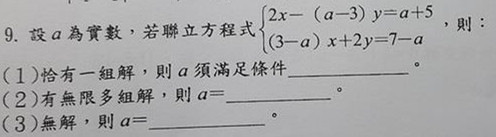 9. 設 a 為實數，若聯立方程式{2x-（a-3）y=a+5
(3-a) x+2y=7-a ，則：
(1)恰有一組解，則 a 須滿足條件__________。
(2)有無限多組解，則 a=__________。
(3)無解，則 a=__________。